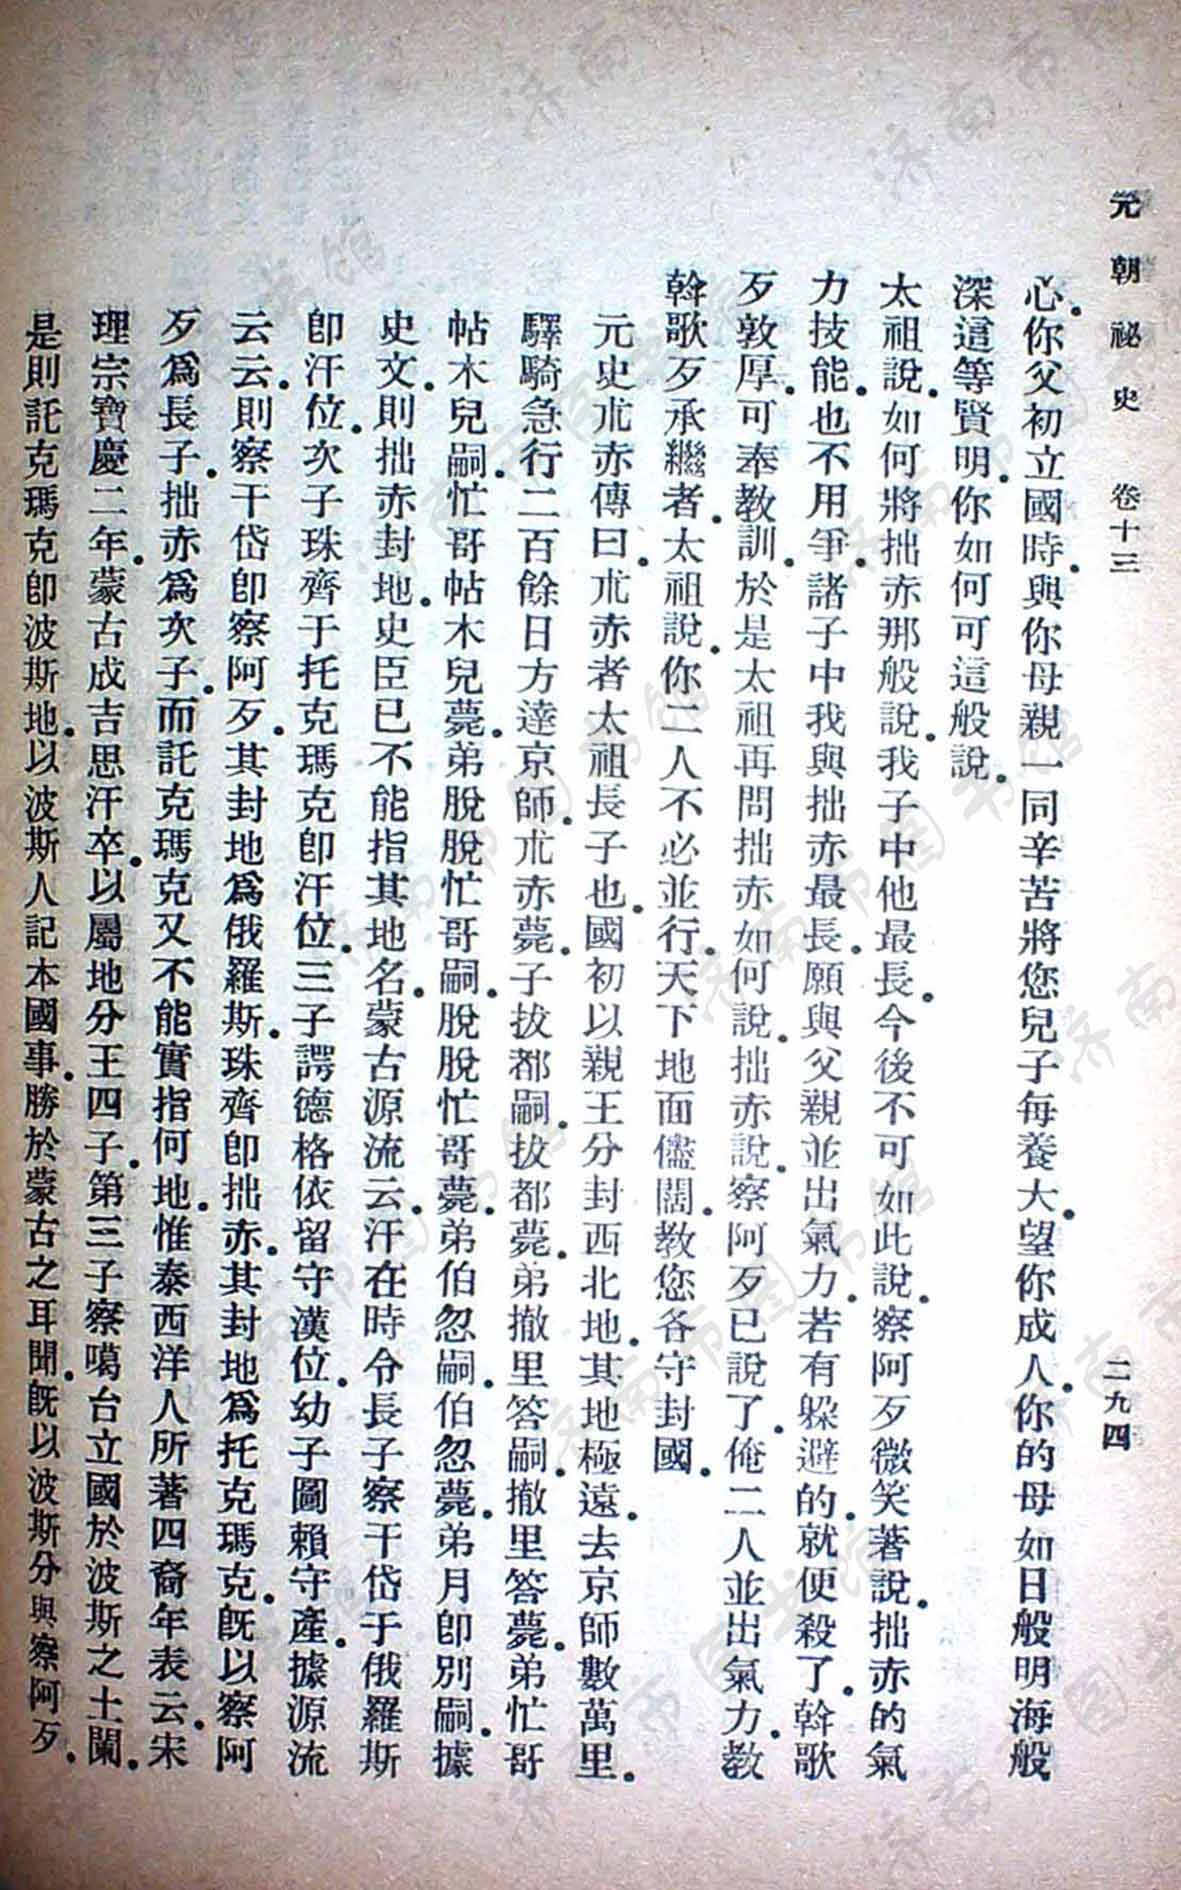 元朝祕史 卷十三 二九四
心。你父初立國時。與你母親一同辛苦將您兒子每養大。望你成人。你的母如日般明海般
深這等賢明。你如何可這般說。
太祖說。如何將拙赤那般說。我子中他最長。今後不可如此說。察阿歹微笑著說。拙赤的氣
力技能。也不用爭。諸子中我與拙赤最長。願與父親並出氣力。若有躲避的。就便殺了。斡歌
歹敦厚。可奉教訓。於是太祖再問拙赤如何說。拙赤說。察阿歹已說了。俺二人並出氣力。教
斡歌歹承繼者。太祖說。你二人不必並行。天下地面儘闊。教您各守封國。
元史朮赤傳曰。朮赤者太祖長子也。國初以親王分封西北地。其地極遠。去京師數萬里。
驛騎急行二百餘日方達京師。朮赤薨。子拔都嗣。拔都薨。弟撤里答嗣。撤里答薨。弟忙哥
帖木兒嗣。忙哥帖木兒薨。弟脫脫忙哥嗣。脫脫忙哥薨。弟伯忽嗣。伯忽薨。弟月即別嗣。據
史文。則拙赤封地。史臣已不能指其地名。蒙古源流云。汗在時令長子察干岱于俄羅斯
即汗位。次子珠齊于托克瑪克即汗位。三子諤德格依留守漢位。幼子圖賴守產。據源流
云云。則察干岱即察阿歹。其封地爲俄羅斯。珠齊即拙赤。其封地爲托克瑪克。既以察阿
歹爲長子。拙赤爲次子。而託克瑪克又不能實指何地。惟泰西洋人所著四裔年表云。宋
理宗寶慶二年。蒙古成吉思汗卒。以屬地分王四子。第三子察噶台立國於波斯之土闌。
是則託克瑪克即波斯地。以波斯人記本國事。勝於蒙古之耳聞。既以波斯分與察阿歹。